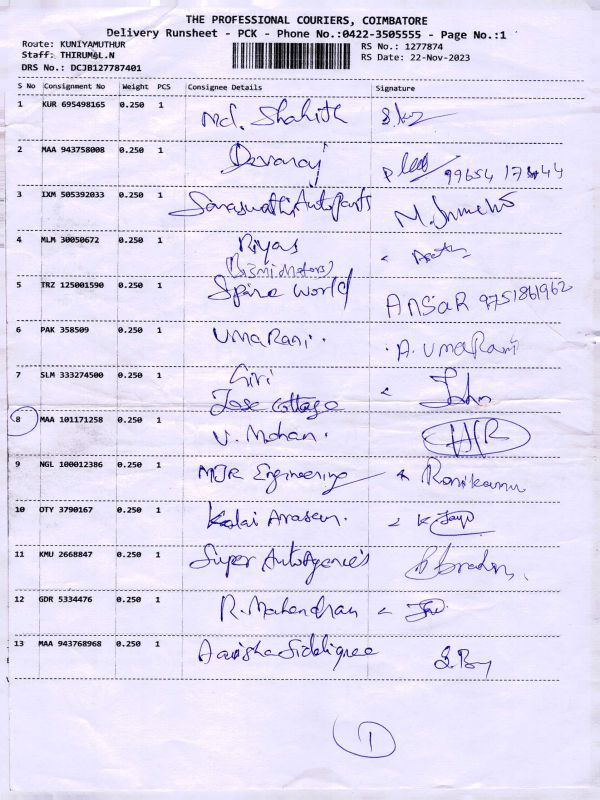 THE PROFESSIONAL COURIERS, COIMBATORE
Delivery Runsheet - PCK - Phone No.:0422-3505555 - Page No.:1
Route: KUNIYAMUTHUR
RS No.: 1277874
Staff: THIRUMAL.N
RS Date: 22-Nov-2023
DRS No.: DCJB127787401
S No Consignment No Weight PCS Consignee Details Signature
1 KUR 695498165 0.250 1 Md. Shahith
2 MAA 943758008 0.250 1 Devaraj
3 IXM 505392033 0.250 1 Saraswathi AutoParts
4 MLM 30050672 0.250 1 Riyas
(Bismi Motors)
5 TRZ 125001590 0.250 1 Spire World ANSAR 9751861962
6 PAK 358509 0.250 1 UmaRani. A. UmaRani
7 SLM 333274500 0.250 1 Giri John
Jose Cottage
8 MAA 101171258 0.250 1 V. Mohan.
9 NGL 100012386 0.250 1 MJR Engineering
10 OTY 3790167 0.250 1 Kalai Arasan.
11 KMU 2668847 0.250 1 Super AutoAgencies
12 GDR 5334476 0.250 1 R. Mahendran
13 MAA 943768968 0.250 1
1